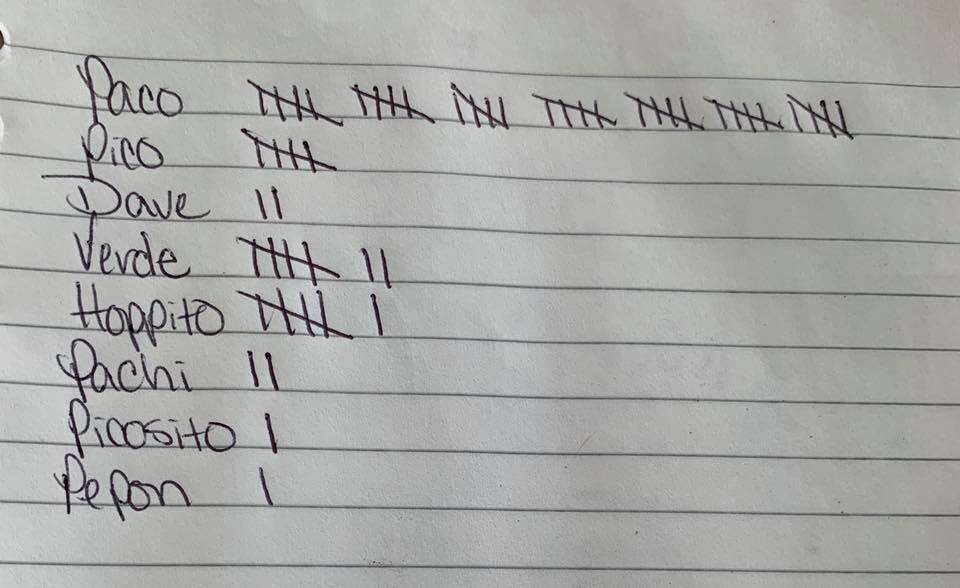 Paco 𝍸 𝍸 𝍸 𝍸 𝍸 𝍸 𝍸
Pico 𝍸
Dave ||
Verde 𝍸 ||
Hoppito 𝍸 |
Pachi ||
Picosito |
Pepon |